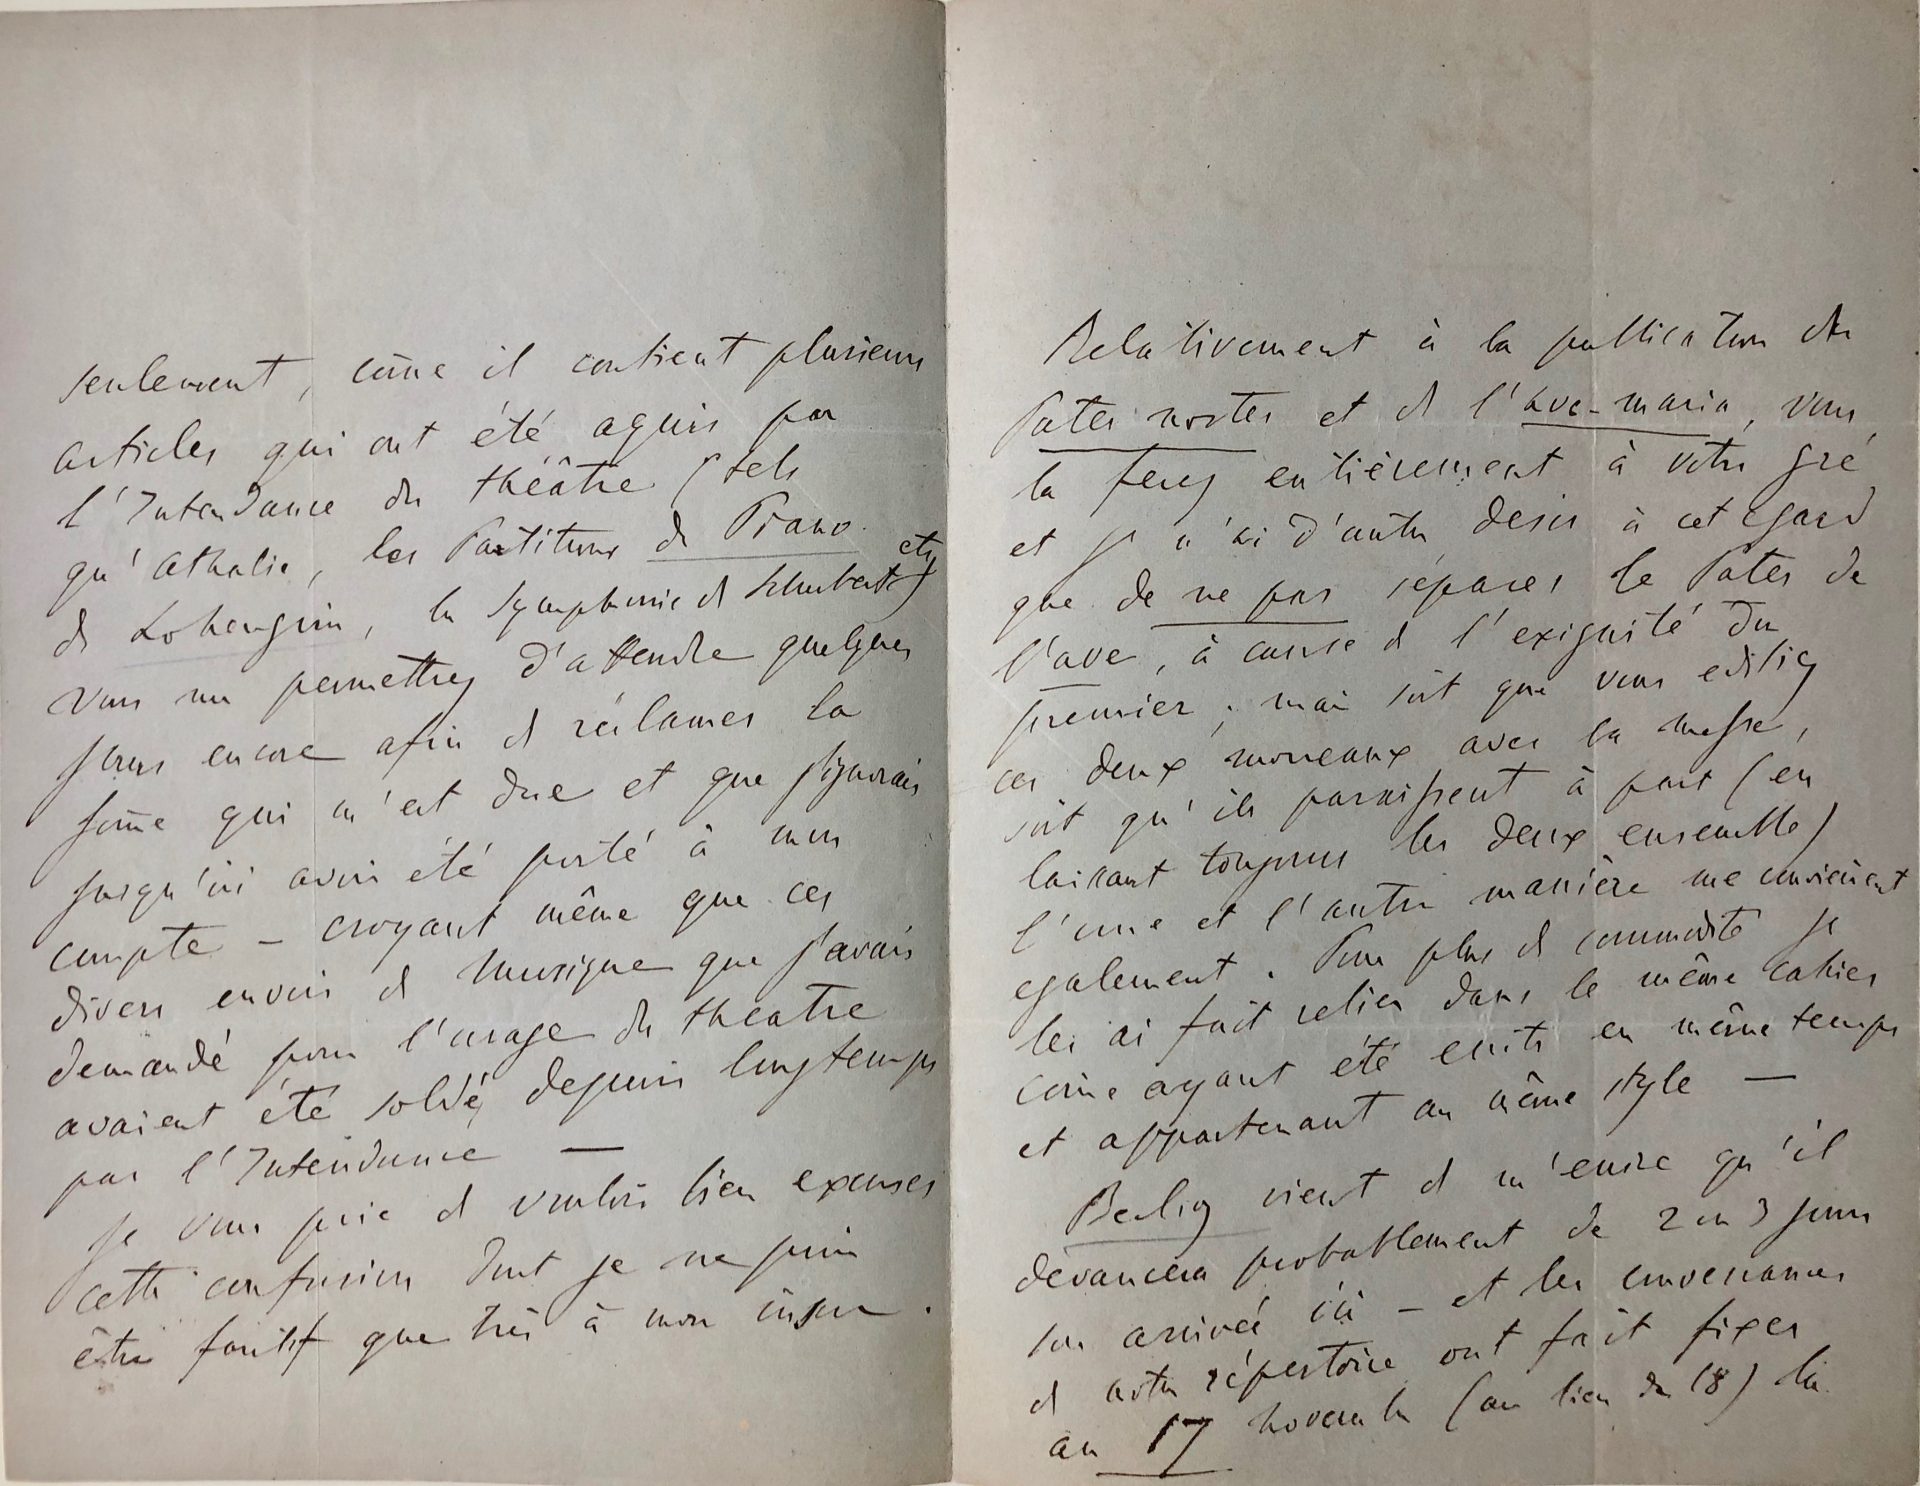 seulement, cōme il contient plusieurs
articles qui ont été aquis par
l'Intendance du théâtre (tels
qu'Athalie, les Partitions de Piano
de Lohengrin, la Symphonie de Schubert etc)
vous me permettrez d'attendre quelques
jours encore afin de réclamer la
som̄e qui m'est due et que j'ignorais
jusqu'ici avoir été porté à mon
compte – croyant même que ces
divers envois de musique que j'avais
demandé pour l'usage du theatre
avaient été soldé, depuis longtemps
par l'Intendance —
Je vous prie de vouloir bien excuser
cette confusion dont je ne puis
être fautif que très à mon insu.
Relativement à la publication du
Pater noster et de l'Ave-maria, vous
la ferez entièrement à votre gré
et je n'ai d'autre desir à cet egard
que de ne pas séparer le Pater de
l'ave, à cause de l'exiguité du
premier; mais soit que vous editiez
ces deux morceaux avec la messe,
soit qu'ils paraissent à part (en
laissant toujours les deux ensemble)
l'une et l'autre manière me convien̄ent
egalement. Pour plus de commodité je
les ai fait relier dans le même cahier
com̄e ayant été ecrits en même temps
et appartenant au même style —
Berlioz vient de m'ecrire qu'il
devancera probablement de 2 ou 3 jours
son arrivée ici – et les convenances
de notre répertoire ont fait fixer
au 17 Novembre (au lieu du 18) la